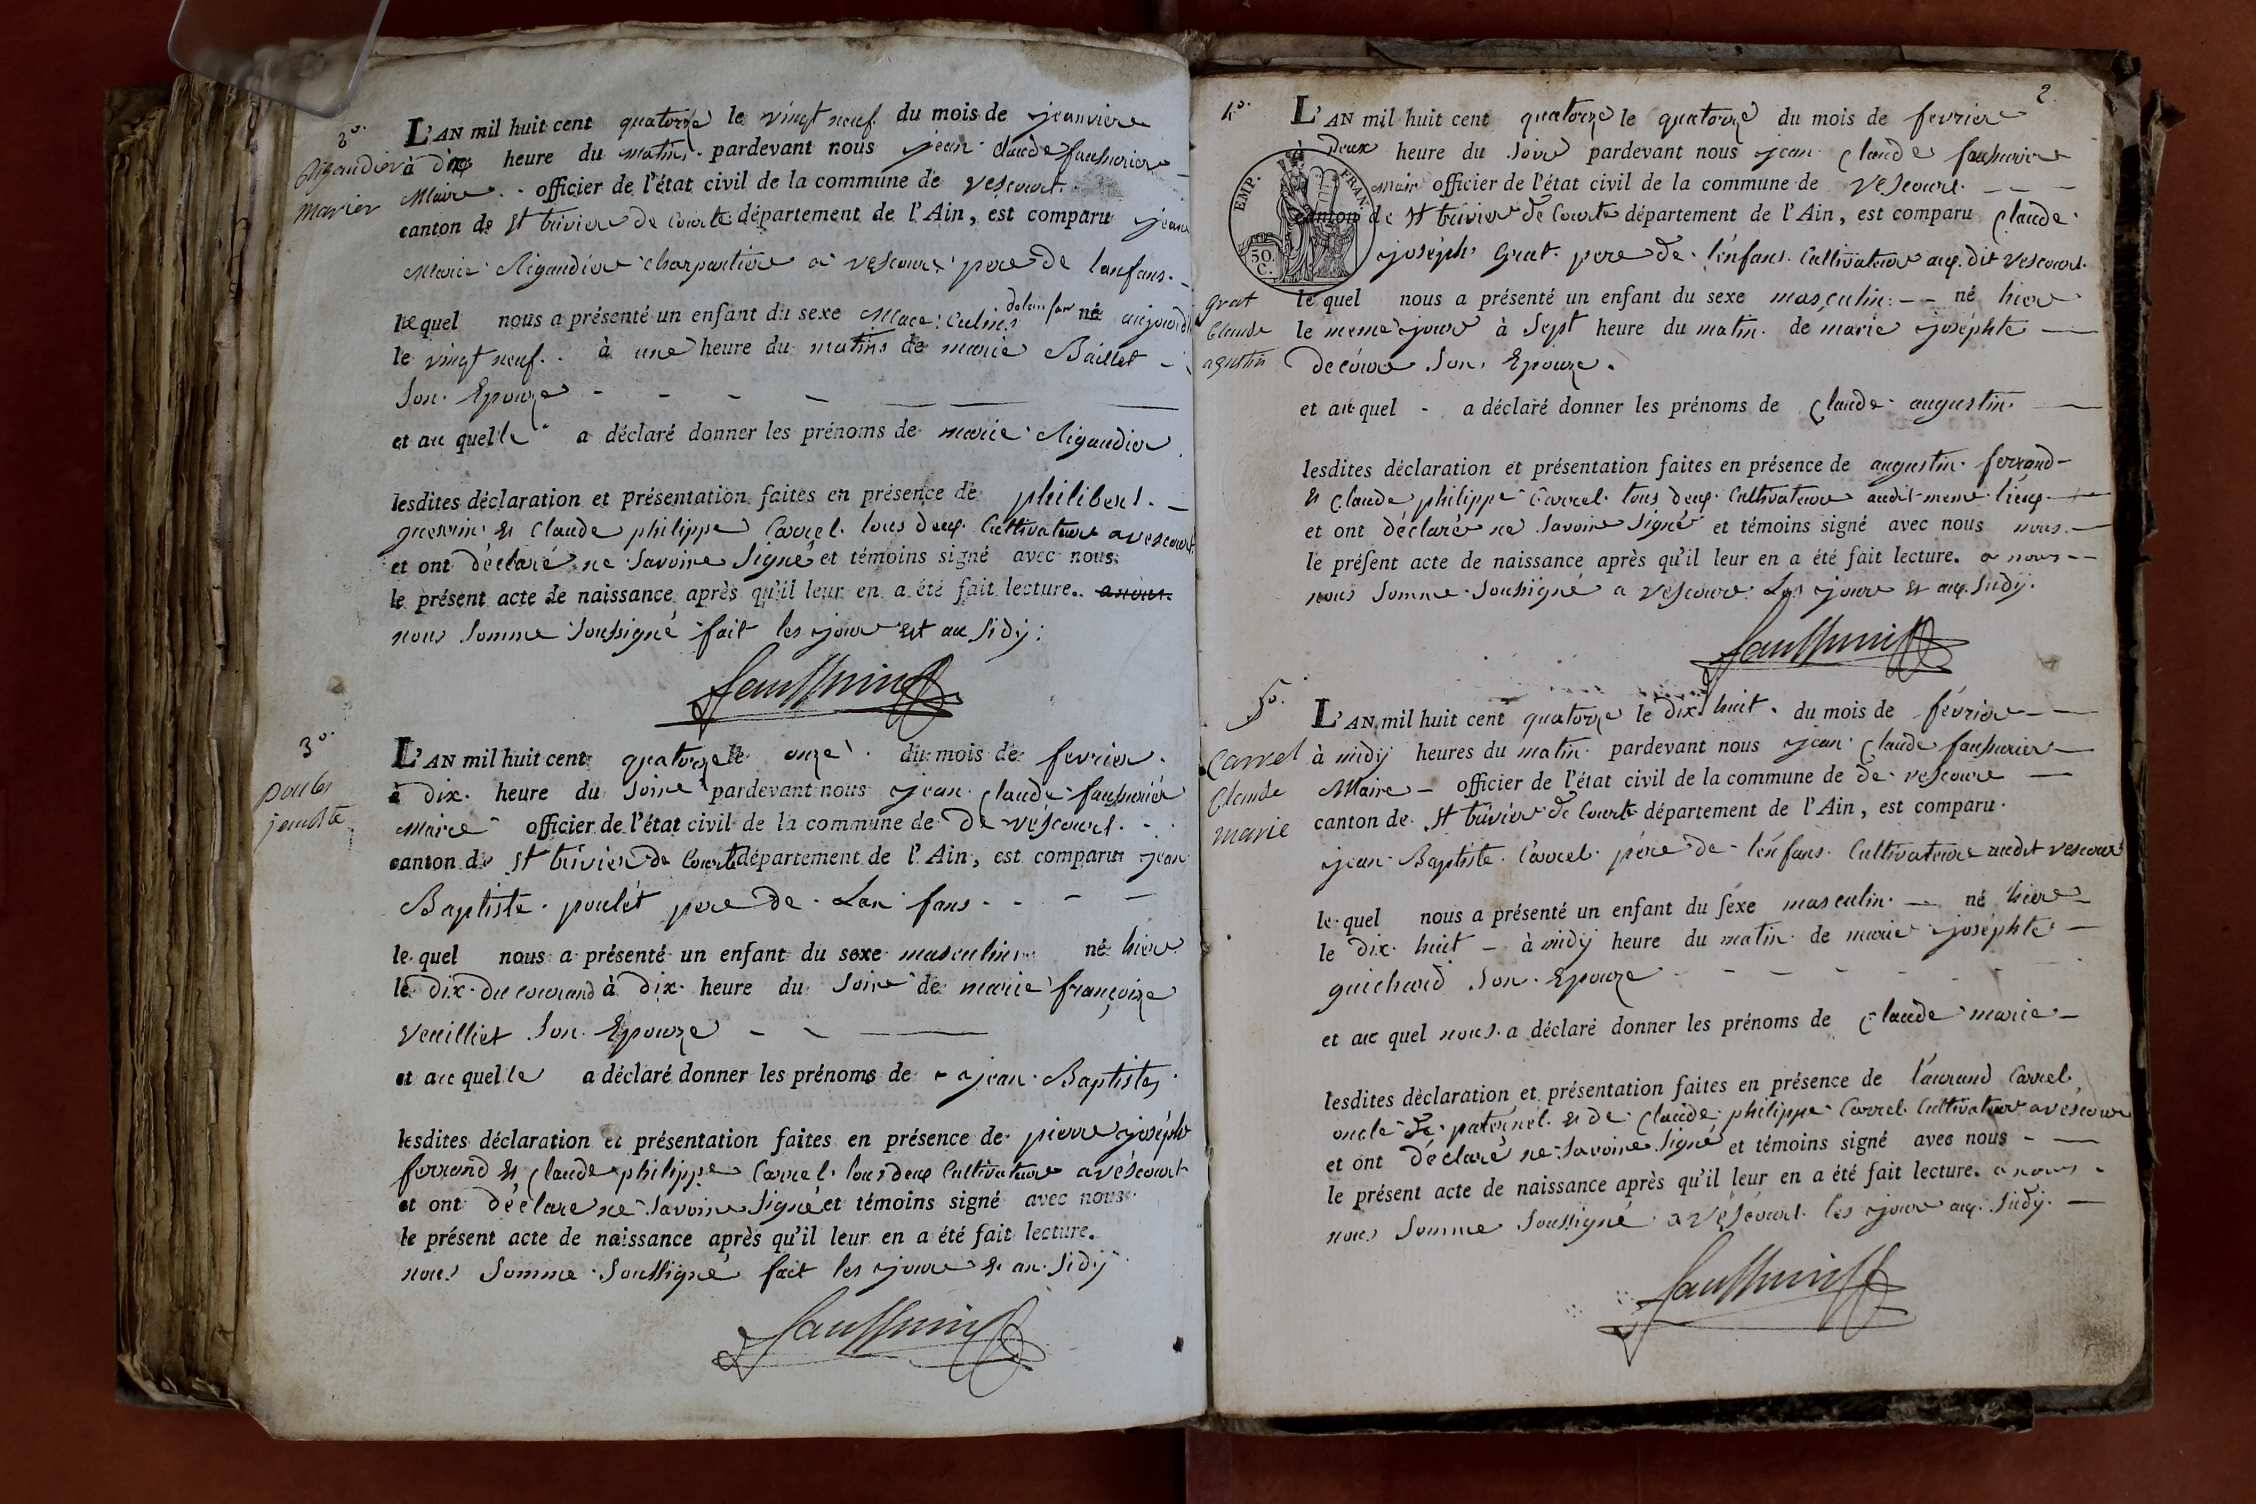 2º.
Rigaudier
marier
L'AN mil huit cent quatorze le vingt neuf du mois de jeanvière
à dix heure du matins pardevant nous jean claude faussurier
Maire officier de l'état civil de la commune de vescourt
canton de St trivier de Courte département de l'Ain, est comparu jean
Marie Rigaudier charpantière a vescourt pere de lanfans
le quel nous a présenté un enfant du sexe né aujourd
le vingt neuf à une heure du matins de marie Baillet
son Epouze
et au quelle a déclaré donner les prénoms de marie Rigaudier
lesdites déclaration et présentation faites en présence de philibert
guerrin et Claude philippe Carrel tous deux Cultivateur a vescourt
et ont déclaré ne savoire signé et témoins signé avec nous
le présent acte de naissance après qu'il leur en a été fait lecture. a nous
nous somme soussigné fait les jour et au sidÿ
3º.
poulet
L'AN mil huit cent quatorze le onze du mois de fevrier
à dix heure du soire pardevant nous jean claude faussurier
Maire officier de l'état civil de la commune de De véscourt
canton de St trivier de Courte département de l'Ain, est comparu jean
Baptiste poulét pere de Lan fans
le quel nous a présenté un enfant du sexe masculin né hier
le dix du courand à dix heure du soire de marie françoize
Veuilliet son Epouze
et au quelle a déclaré donner les prénoms de jean Baptiste
lesdites déclaration et présentation faites en présence de pierre joséph
ferrand et Claude philippe Carrel tous deux Cultivateur a véscourt
et ont déclaré ne savoire signé et témoins signé avec nous
le présent acte de naissance après qu'il leur en a été fait lecture.
nous somme soussigné fait les jour et an sidÿ
2.
4º.
L'AN mil huit cent quatorze le quatorze du mois de fevrier
à deux heure du soire pardevant nous jean Claude faussurier
mair officier de l'état civil de la commune de vescourt
canton de St trivier de Courte département de l'Ain, est comparu Claude
EMP. FRAN.
50 C.
joséph Grat pere de lénfans Cultivateur aux dit vescourt
grat
Claude
agustin
le quel nous a présenté un enfant du sexe masculin né hier
le meme jour à sept heure du matin de marie joséphte
decuire son Epouze.
et au quel a déclaré donner les prénoms de Claude augustin
lesdites déclaration et présentation faites en présence de augustin ferrand
et Claude philippe Carrel tous deux Cultivateur audit meme lieux
et ont déclaré ne savoire signé et témoins signé avec nous nous
le présent acte de naissance après qu'il leur en a été fait lecture. a nous
nous somme soussigné a vescourt Les jour et aux sudÿ.
5º.
Carrel
Claude
marie
L'AN mil huit cent quatorze le dix huit du mois de février
à midÿ heures du matin pardevant nous jean Claude faussurier
Maire officier de l'état civil de la commune de de vescourt
canton de St trivier de Courte département de l'Ain, est comparu
jean Baptiste Carrel pére de lénfans Cultivateur audit vescour
le quel nous a présenté un enfant du sexe masculin né hier
le dix huit à midÿ heure du matin de marie joséphte
guichard son Epouze
et au quel nous a déclaré donner les prénoms de Claude marie
lesdites déclaration et présentation faites en présence de laurand Carrel
oncle paternel et de Claude philippe Carrel Cultivateur a véscour
et ont déclaré ne savoire signé et témoins signé avec nous
le présent acte de naissance après qu'il leur en a été fait lecture. a nous
nous somme soussigné a véscourt les jour aux sudÿ.